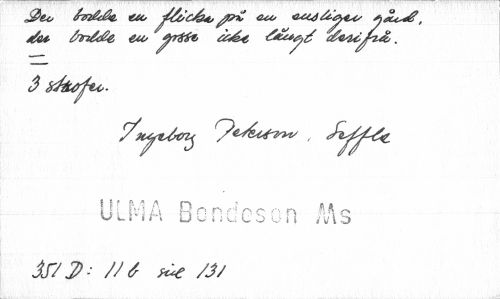 Der bodde en flicka på en ensliger gård,
der bodde en gosse icke långt derifrå.
3 strofer.
Ingeborg Peterson, Seffle
ULMA Bondeson Ms
351 D: 11 b sid 131